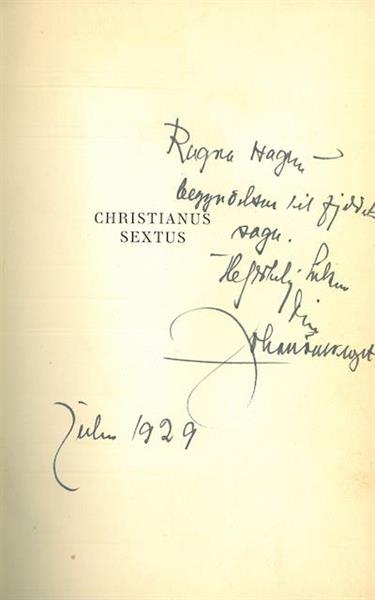 CHRISTIANUS
SEXTUS
Ragna Hagen –
begyndelsen til
Hjertelig hilsen
din
Johan Falkberget
Julen 1929